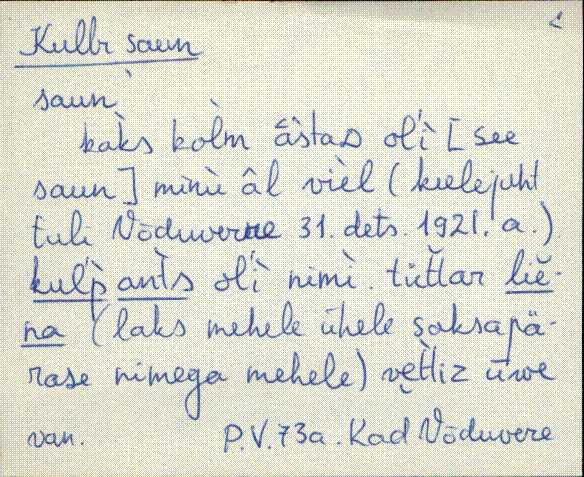 Kulbi saun
saun`
kàks kòlm âstaᴅ oĺì [see
saun] minù âl vìel (keelejuht
tuli Võduverre 31. dets. 1921. a.)
kuĺp̀ ańt̀s oĺì nimì. tüt̆tar liè-
na (läks mehele ühele saksapä-
rase nimega mehele) vet̆tiz üwe
van. P.V. 73 a. Kad Võduvere